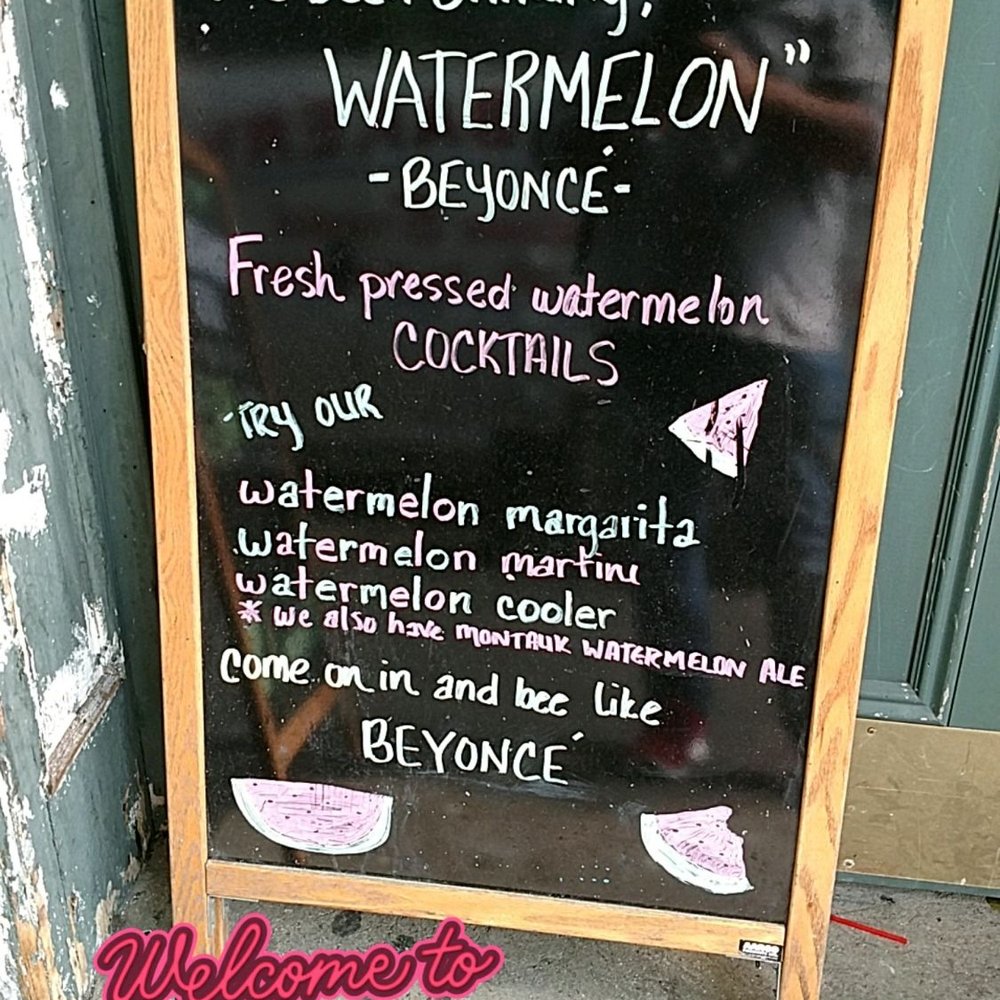 WATERMELON"
-BEYONCÉ-
Fresh pressed watermelon
COCKTAILS
TRY OUR
watermelon margarita
watermelon martini
watermelon cooler
* we also have MONTAUK WATERMELON ALE
come on in and bee like
BEYONCE´
Welcome to